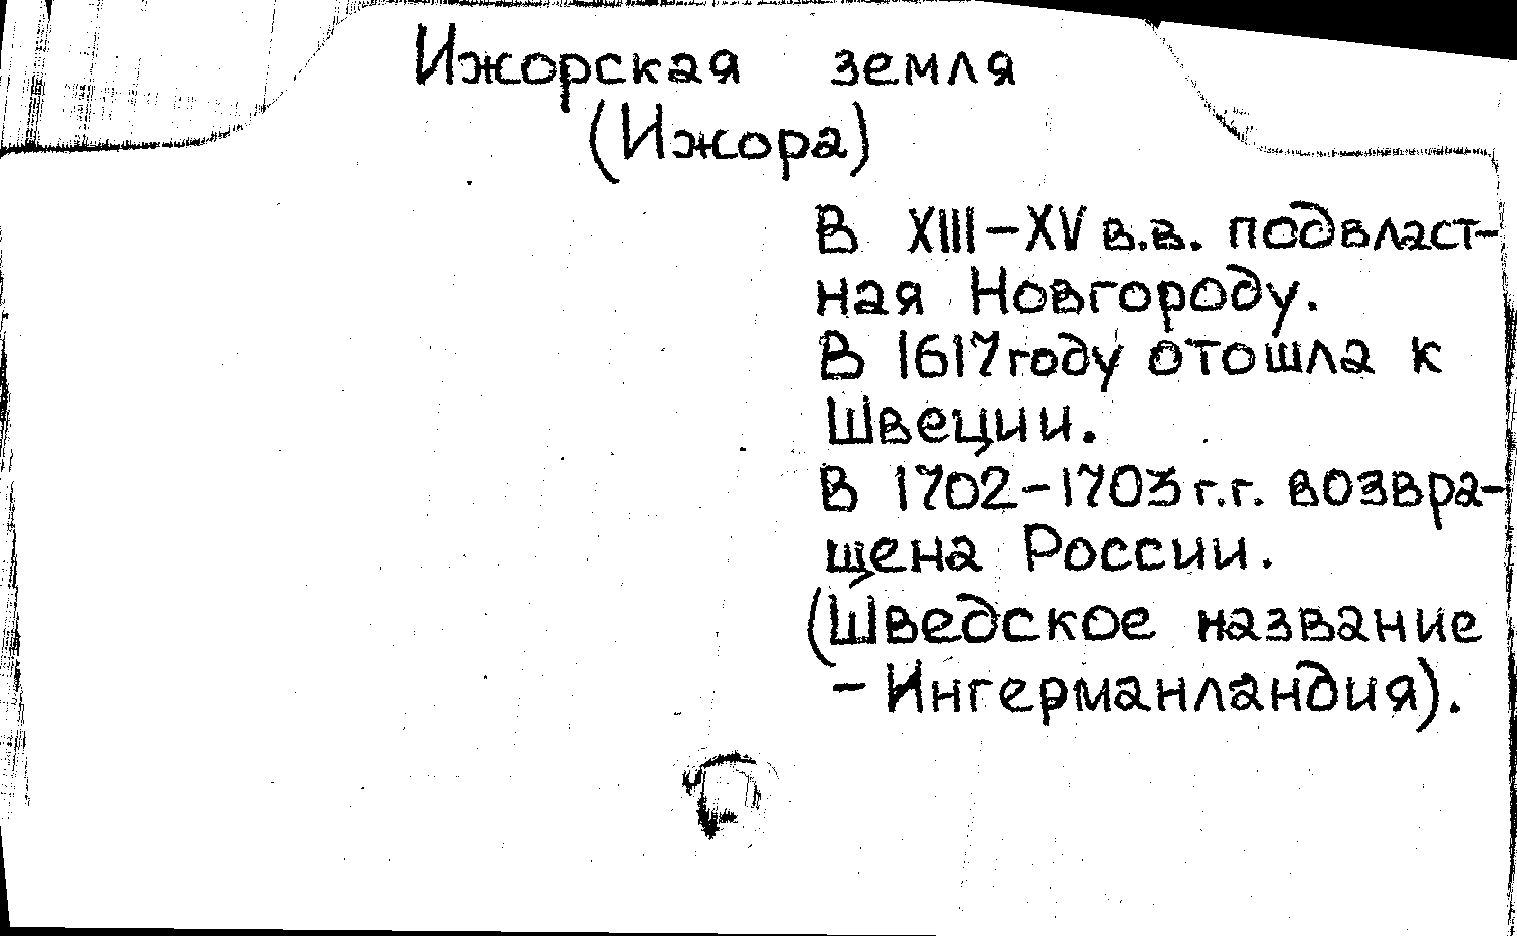 Ижорская земля
(Ижора)
В XIII-XV в.в. подвласт-
ная Новгороду.
В 1617 году отошла к
Швеции.
В 1702-1703 г.г. возвра-
щена России.
(Шведское название
- Ингерманландия).